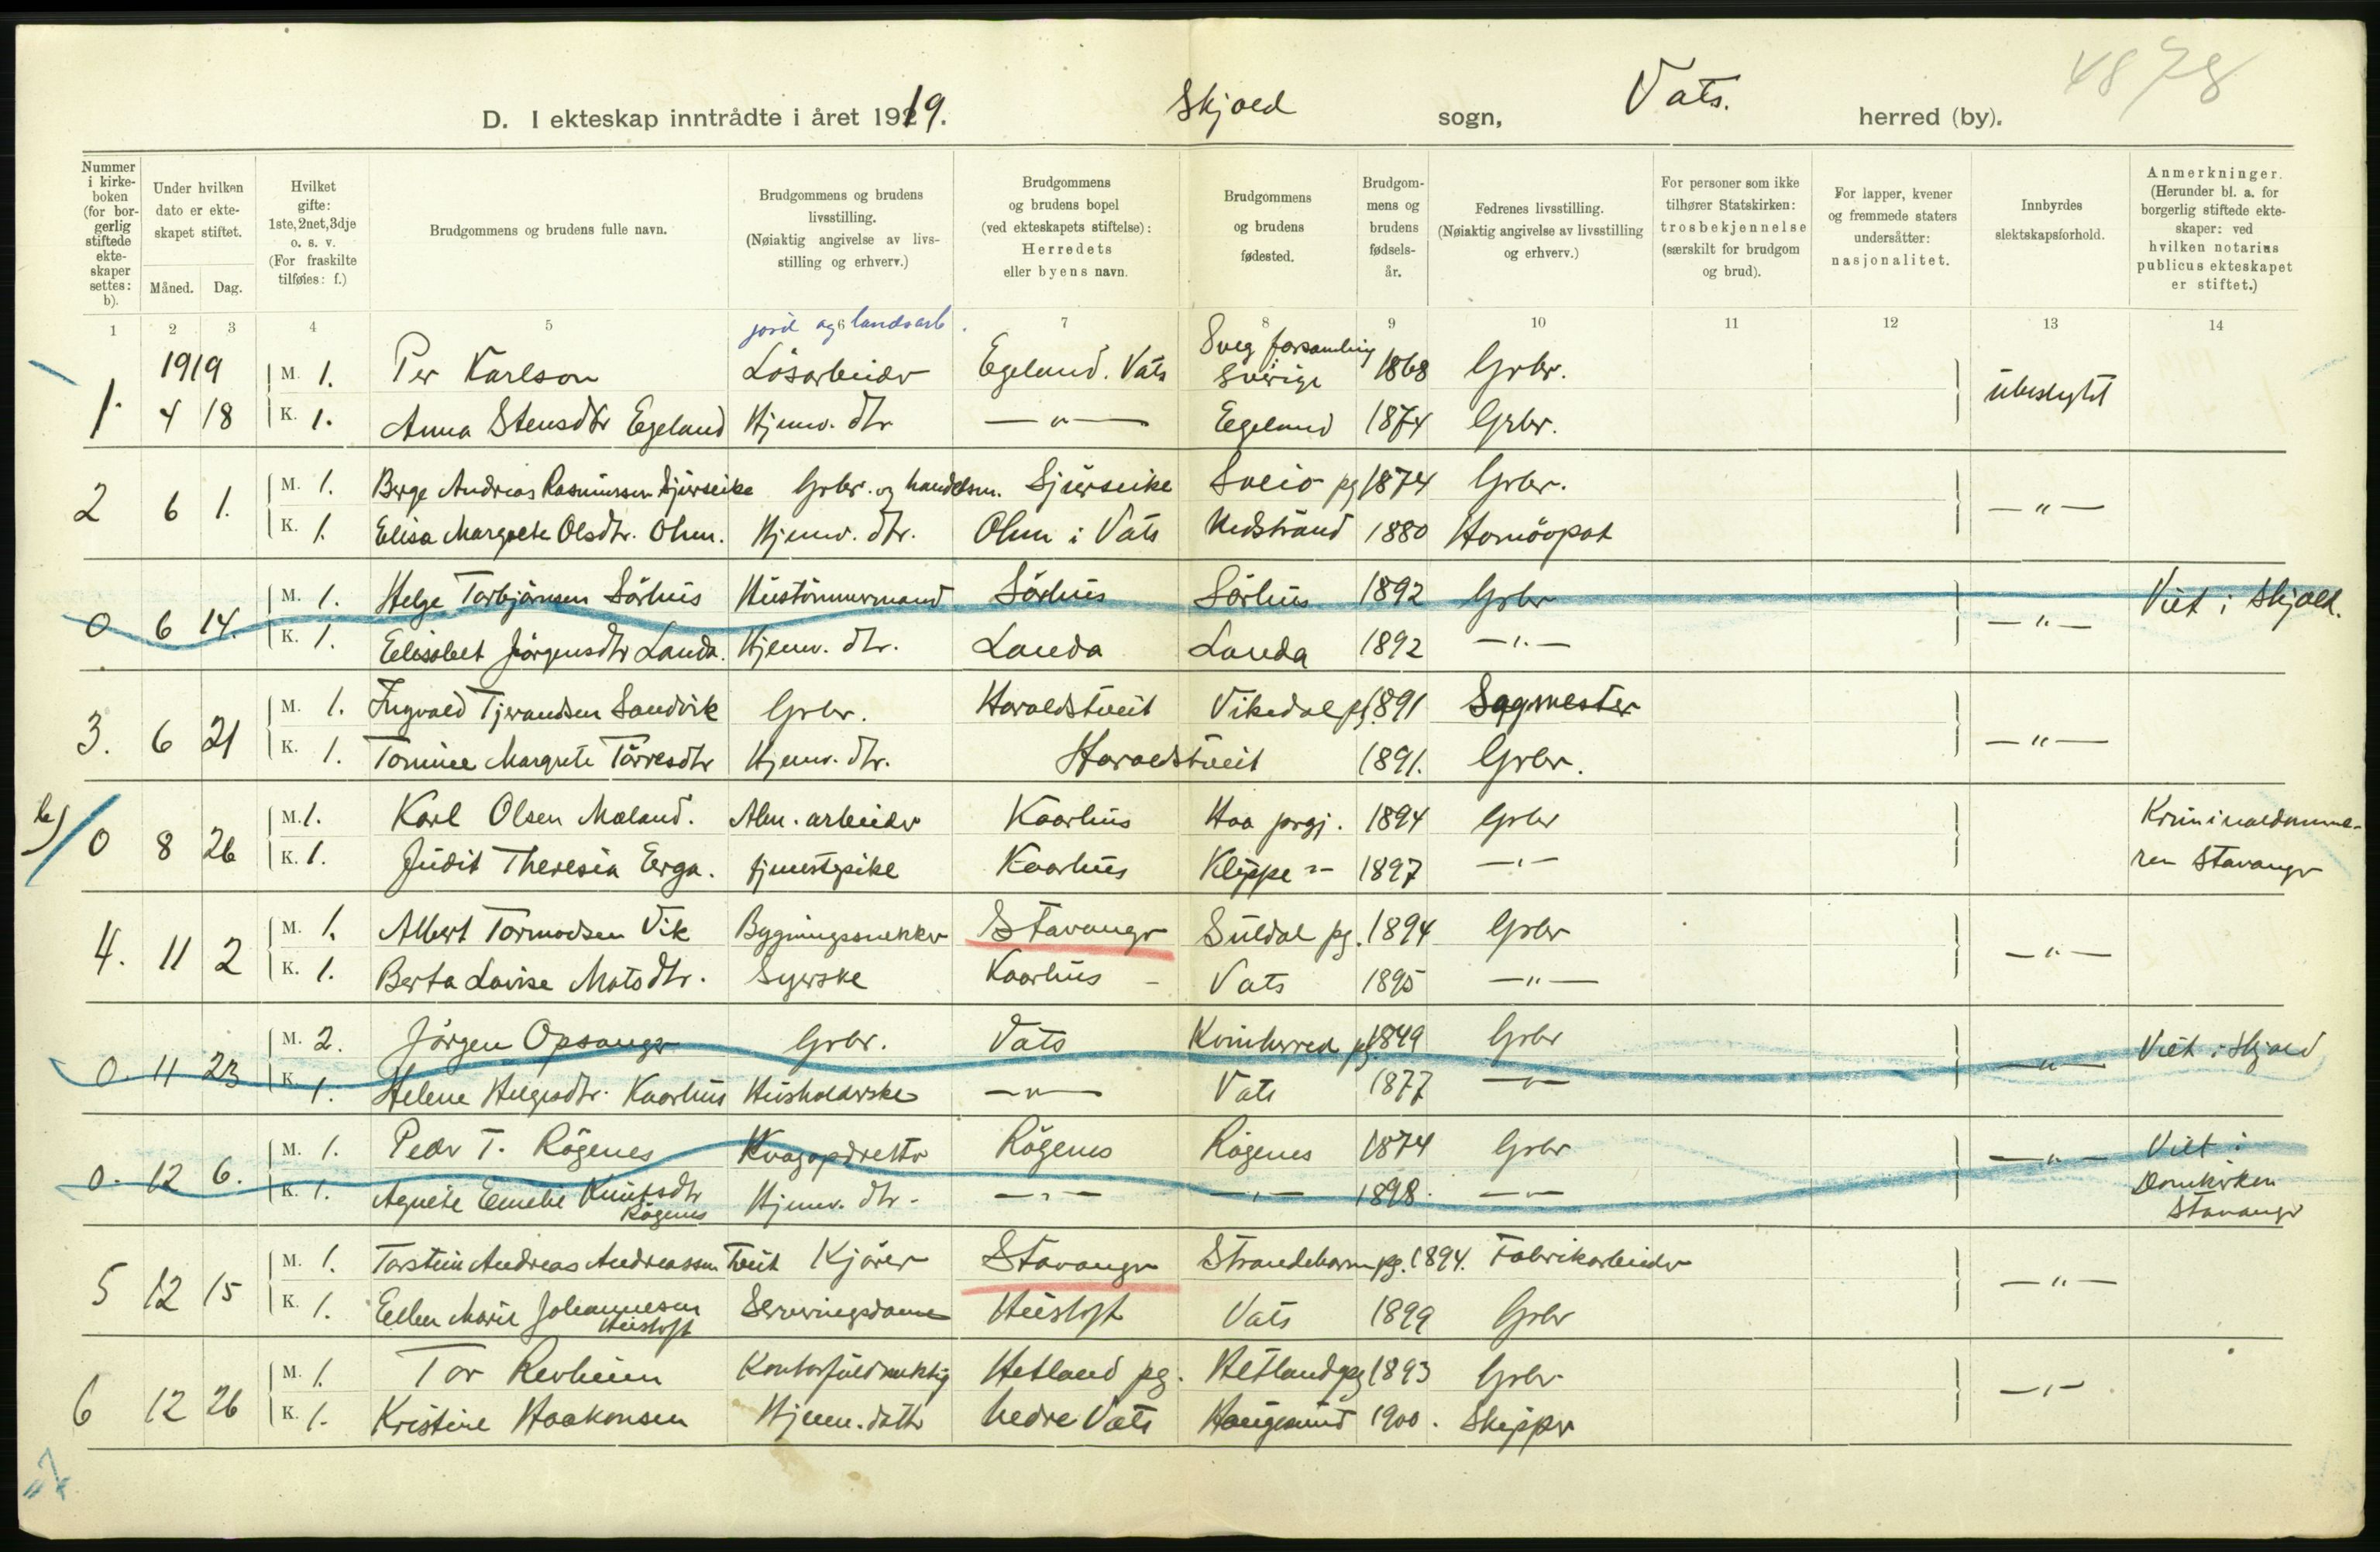 4878
D. I ekteskap inntrådte i året 1919. Skjold sogn, Vats. herred (by).
Nummer i kirkeboken (for borgerlig stiftede ekteskaper settes: b).
Under hvilken dato er ekteskapet stiftet.
Måned. Dag.
Hvilket gifte: 1ste, 2net, 3dje o. s. v. (For fraskilte tilføies: f.)
Brudgommens og brudens fulle navn.
Brudgommens og brudens livsstilling. (Nøiaktig angivelse av livsstilling og erhverv.)
Brudgommens og brudens bopel (ved ekteskapets stiftelse): Herredets eller byens navn.
Brudgommens og brudens fødested.
Brudgommens og brudens fødselsår.
Fedrenes livsstilling. (Nøiaktig angivelse av livsstilling og erhverv.)
For personer som ikke tilhører Statskirken: trosbekjennelse (særskilt for brudgom og brud).
For lapper, kvener og fremmede staters undersåtter: nasjonalitet.
Innbyrdes slektskapsforhold.
Anmerkninger. (Herunder bl. a. for borgerlig stiftede ekteskaper: ved hvilken notarius publicus ekteskapet er stiftet.)
1 2 3 4 5 6 7 8 9 10 11 12 13 14
jord og landsarb.
1919 M. 1. Per Karlson Lösarbeider Egeland. Vats Sveg forsamling Sverige 1868 Grbr.
1. 4 18 K. 1. Anna Stensdtr Egeland Hjemv. dtr — " — Egeland 1874 Grbr. übeslegtet
2 6 1. M. 1. Berge Andreas Rasmussen Sjurseike Grbr. og handelsm. Sjurseike Sveio pg 1874 Grbr. — " —
K. 1. Elisa Margrete Olsdtr. Ohm. Hjemv. dtr. Ohm i Vats Nedstrand 1880 Homöopat
0 6 14. M. 1. Helge Torbjörnsen Sörhus Hustömmermand Sörhus Sörhus 1892 Grbr — " — Viet i Skjold.
K. 1. Elisabet Jörgensdtr Landa. Hjemv. dtr. Landa Landa 1892 — " —
3. 6 21 M. 1. Ingvald Tjerandsen Sandvik Grbr. Haraldstveit Vikedal pg. 1891 Sagmester — " —
K. 1. Tomine Margrete Törresdtr Hjemv. dtr. Haraldstveit 1891. Grbr.
b) 0 8 26 M. 1. Karl Olsen Mæland. Alm. arbeider Kaarhus Haa prgj. 1894 Grbr Kriminaldomme-
K. 1. Judit Theresia Erga. tjenestepike Kaarhus Kleppe "- 1897 — " — ren Stavanger
4. 11 2 M. 1. Albert Tormodsen Vik Bygningssnekker Stavanger Suldal pg. 1894 Grbr — " —
K. 1. Berta Lovise Matsdtr. Syerske Kaarhus - Vats 1895 — " —
0. 11 23 M. 2. Jörgen Opsanger Grbr. Vats Kvinherred pg. 1849 Grbr — " — Viet i Skjold
K. 1. Helene Helgesdtr. Kaarhus Husholderske — " — Vats 1877 — " —
0. 12 6. M. 1. Peder T. Rögenes Kvægopdretter Rögenes Rögenes 1874 Grbr — " — Viet i
K. 1. Agnete Emelie Knutsdtr Rögenes Hjemv. dtr. — " — — " — 1898. — " — Domkirken Stavanger
5 12 15 M. 1. Torstein Andreas Andreassen Tveit Kjörer Stavanger Strandebarm pg. 1894. Fabrikarbeider — " —
K. 1. Ellen Marie Johannesen Husloft Serveringsdame Husloft Vats 1899 Grbr
6 12 26 M. 1. Tor Revheim Kontorfuldmektig Hetland pg. Hetland pg 1893 Grbr — " —
K. 1. Kristine Haakonsen Hjem. datter Nedre Vats Haugesund 1900. Skipper